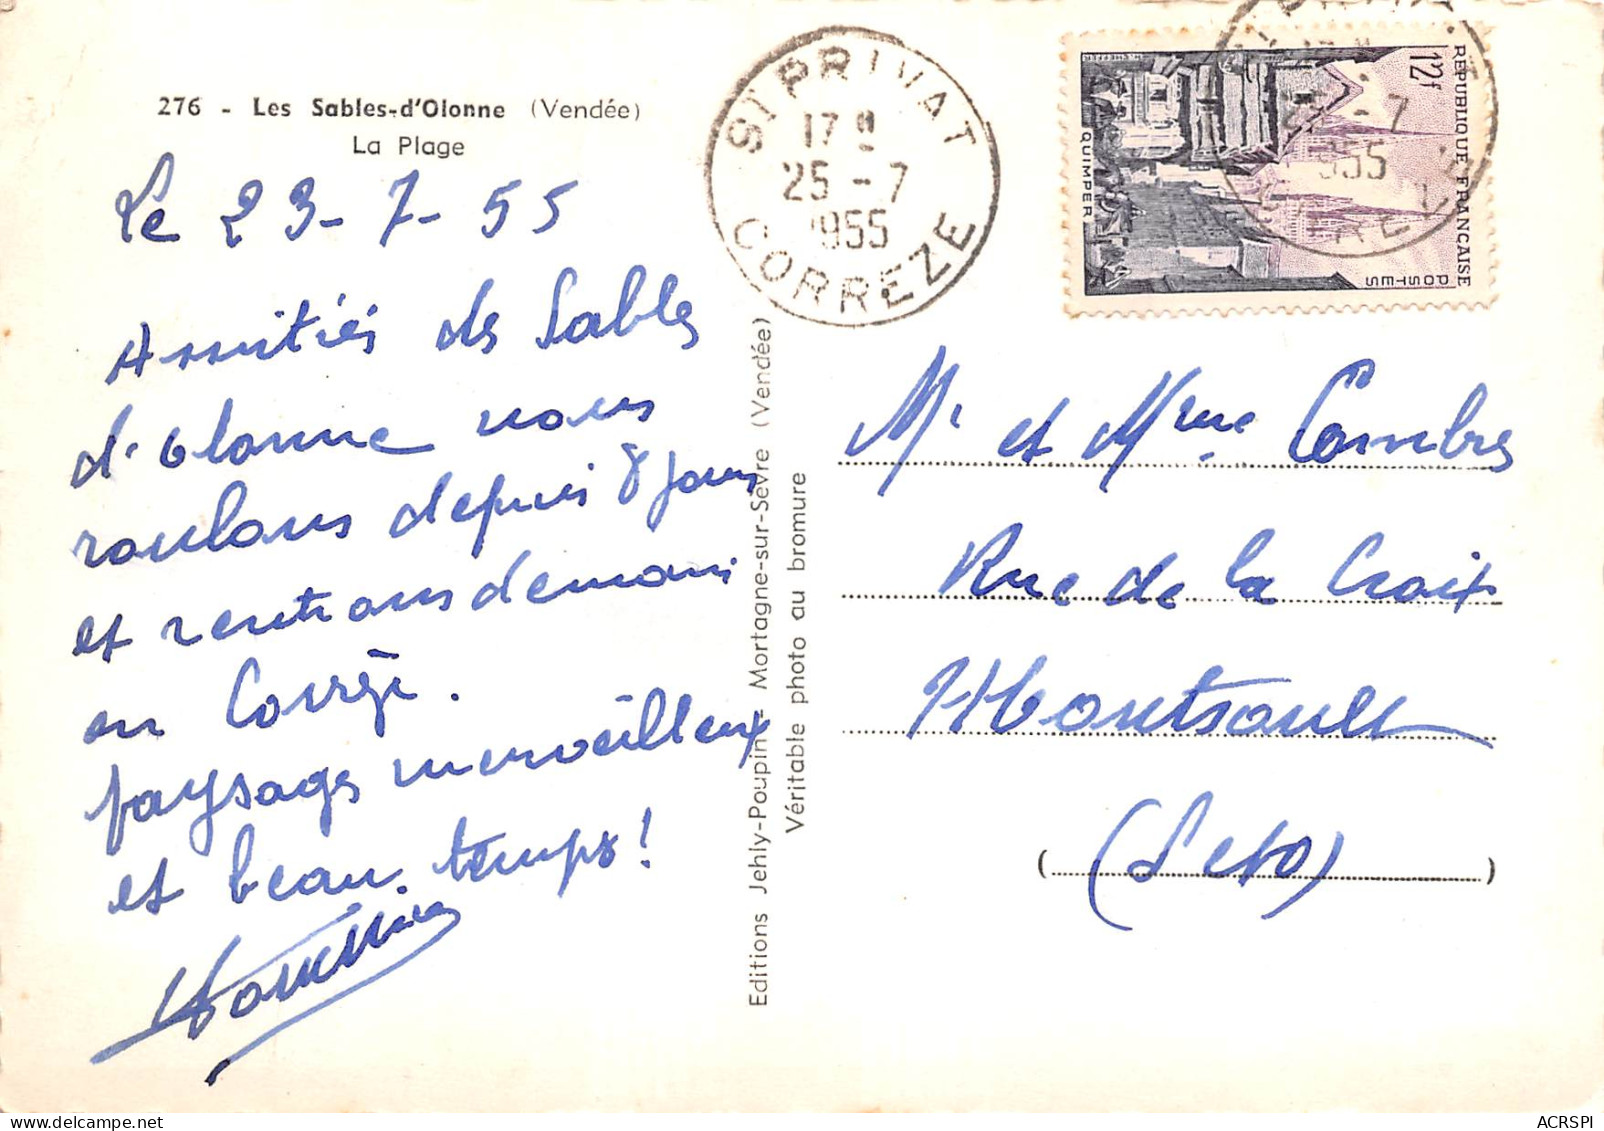 276 - Les Sables-d'Olonne (Vendée)
La Plage
Le 23-7-55
Amitiés des Sables
d'olonne nous
roulons depuis 8 jours
et rentrons demain
en Corrèze.
paysages merveilleux
et beau temps!
Editions Jehly-Poupin - Mortagne-sur-Sèvre (Vendée)
Véritable photo au bromure
ST PRIVAT
17 H
25 - 7
1955
CORREZE
REPUBLIQUE FRANÇAISE
12f
POSTES
QUIMPER
Mr et Mme Combes
Rue de la Croix
Montsoult
(S et O)
ACRSPI